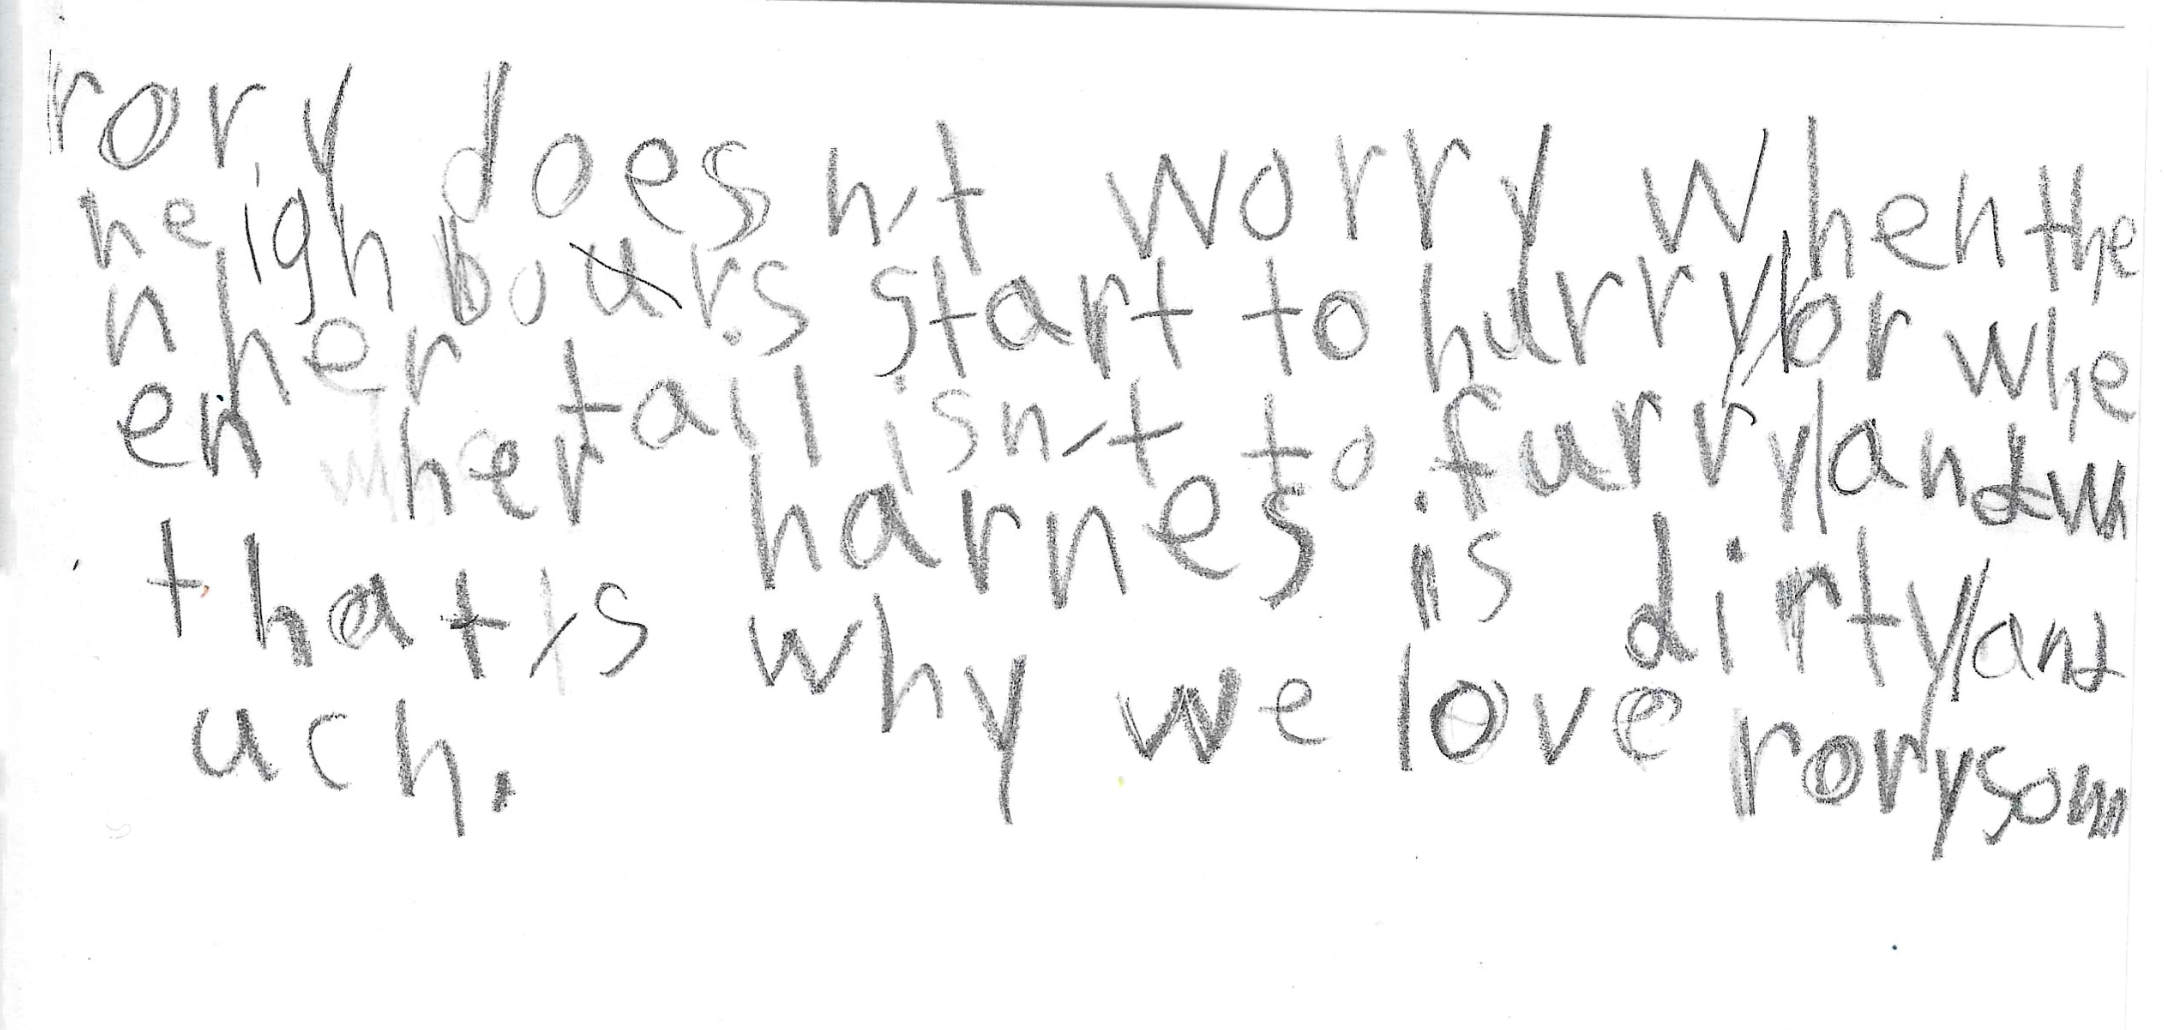 rory doesn't worry when the
neighbours start to hurry/or whe
n her tail isn't to furry/and wh
en her harnes is dirty/and
that's why we love rory so m
uch.